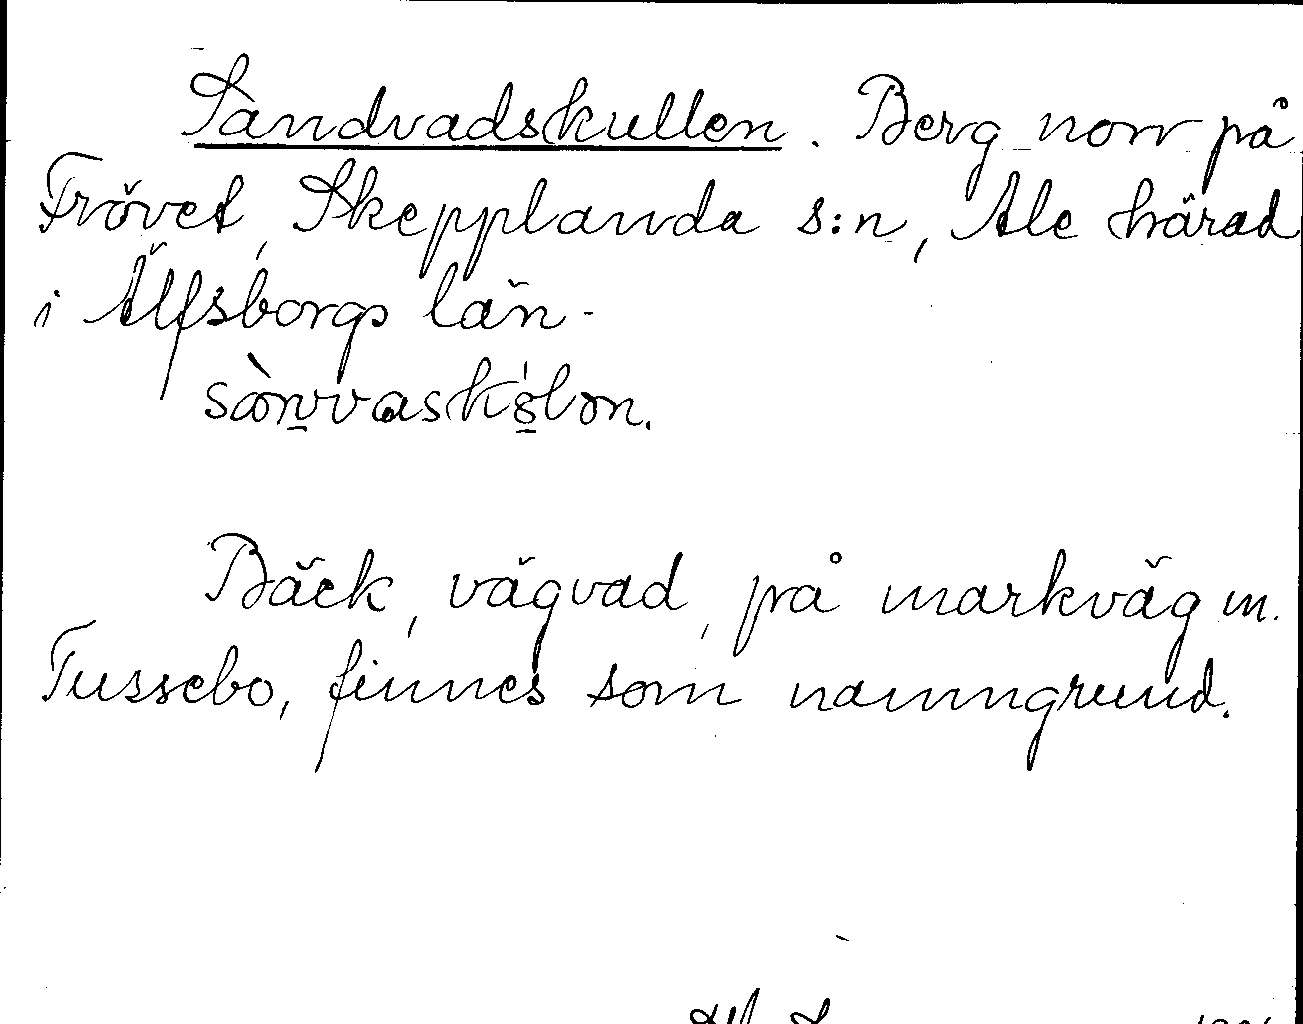 Sandvadskullen. Berg norr på
Frövet, Skepplanda s:n, Ale härad
i Älfsborgs län.
sònvvaskölon.
Bäck, vägvad, på markväg m.
Tussebo, finnes som namngrund.